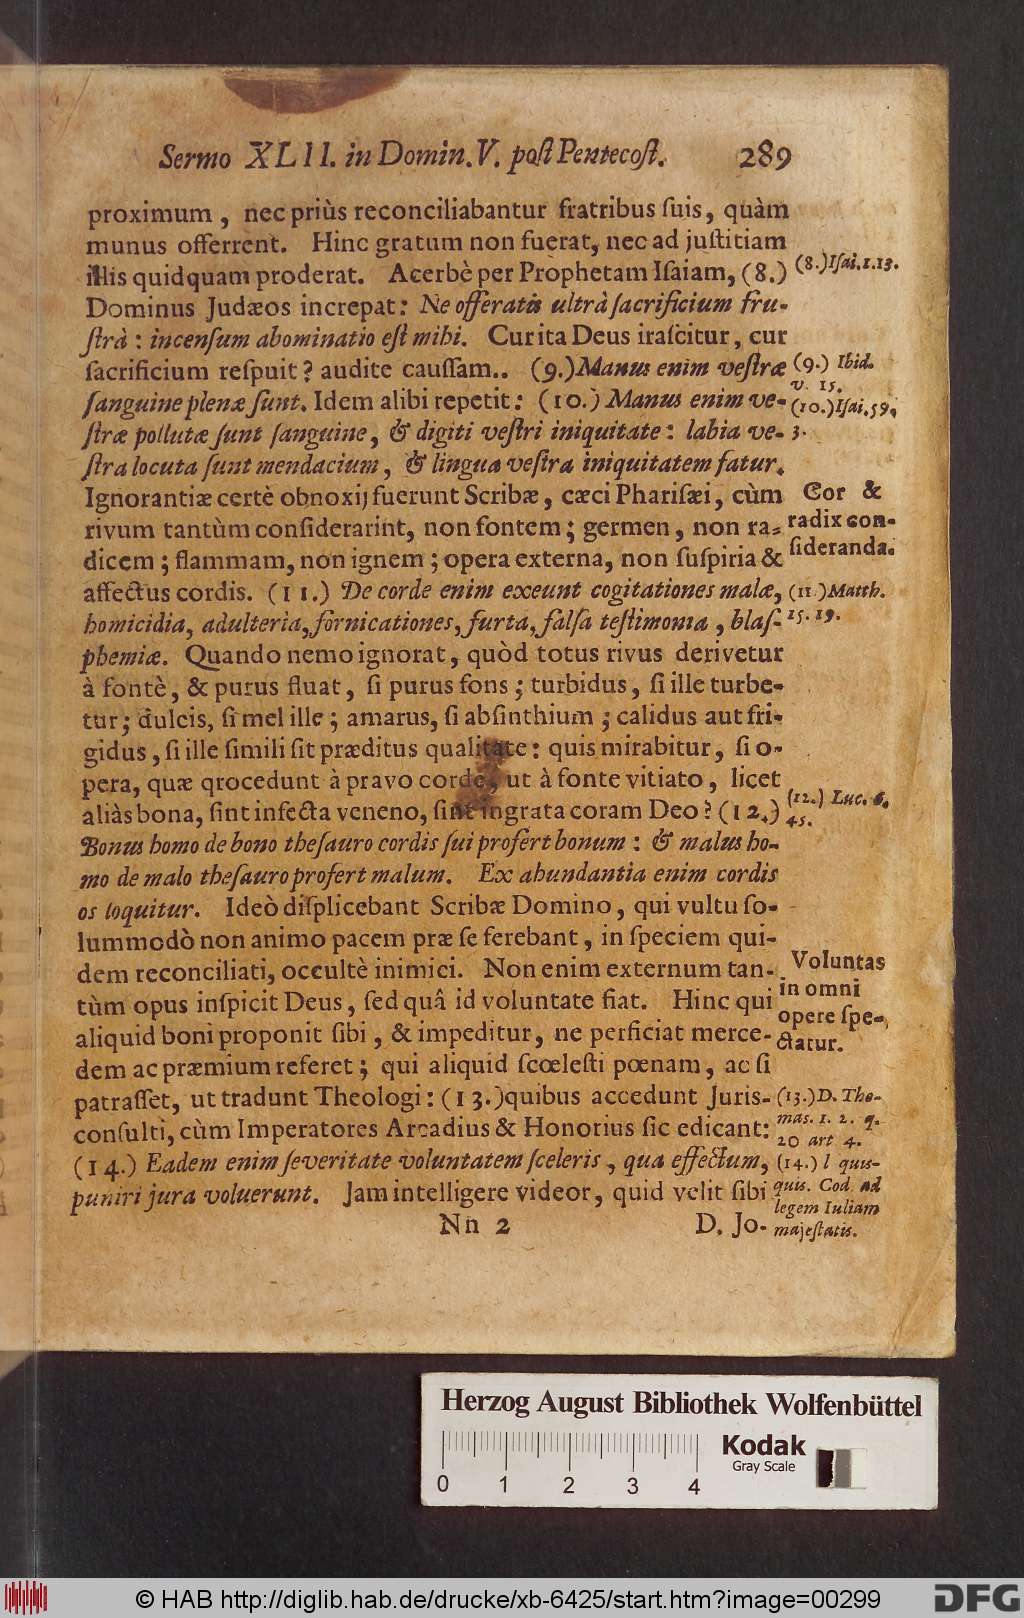 Sermo XLII. in Domin. V. poſt Pentecoſt. 289
proximum, nec priùs reconciliabantur fratribus ſuis, quàm
munus offerrent. Hinc gratum non fuerat, nec ad juſtitiam
illis quidquam proderat. Acerbè per Prophetam Iſaiam, (8.)
Dominus Judæos increpat: Ne offeratis ultrà ſacrificium fru-
ſtrà: incenſum abominatio eſt mihi. Cur ita Deus iraſcitur, cur
ſacrificium reſpuit? audite cauſſam.. (9.) Manus enim veſtræ
ſanguine plenæ ſunt. Idem alibi repetit: (10.) Manus enim ve-
ſtræ pollutæ ſunt ſanguine, & digiti veſtri iniquitate: labia ve-
ſtra locuta ſunt mendacium, & lingua veſtra iniquitatem fatur.
Ignorantiæ certè obnoxij fuerunt Scribæ, cæci Phariſæi, cùm
rivum tantùm conſiderarint, non fontem; germen, non ra-
dicem; flammam, non ignem; opera externa, non ſuſpiria &
affectus cordis. (11.) De corde enim exeunt cogitationes malæ,
homicidia, adulteria, fornicationes, furta, falſa teſtimonia, blaſ-
phemiæ. Quando nemo ignorat, quòd totus rivus derivetur
à fontè, & purus fluat, ſi purus fons; turbidus, ſi ille turbe-
tur; dulcis, ſi mel ille; amarus, ſi abſinthium; calidus aut fri-
gidus, ſi ille ſimili ſit præditus qualitate: quis mirabitur, ſi o-
pera, quæ qrocedunt à pravo corde, ut à fonte vitiato, licet
aliàs bona, ſint infecta veneno, ſint ingrata coram Deo? (12.)
Bonus homo de bono theſauro cordis ſui profert bonum: & malus ho-
mo de malo theſauro profert malum. Ex abundantia enim cordis
os loquitur. Ideò diſplicebant Scribæ Domino, qui vultu ſo-
lummodò non animo pacem præ ſe ferebant, in ſpeciem qui-
dem reconciliati, occultè inimici. Non enim externum tan-
tùm opus inſpicit Deus, ſed quâ id voluntate fiat. Hinc qui
aliquid boni proponit ſibi, & impeditur, ne perficiat merce-
dem ac præmium referet; qui aliquid ſcœleſti pœnam, ac ſi
patraſſet, ut tradunt Theologi: (13.) quibus accedunt Juris-
conſulti, cùm Imperatores Arcadius & Honorius ſic edicant:
(14.) Eadem enim ſeveritate voluntatem ſceleris, qua effectum,
puniri jura voluerunt. Jam intelligere videor, quid velit ſibi
Nn 2 D. Jo-
(8.) Iſai. 1. 13.
(9.) Ibid.
v. 15.
(10.) Iſai. 59.
3.
Cor &
radix con-
ſideranda.
(11.) Matth.
15. 19.
(12.) Luc. 6.
45.
Voluntas
in omni
opere ſpe-
ctatur.
(13.) D. Tho-
mas. 1. 2. q.
20 art 4.
(14.) l quis-
quis. Cod. ad
legem Iuliam
majeſtatis.
Herzog August Bibliothek Wolfenbüttel
Kodak
Gray Scale
0 1 2 3 4
© HAB http://diglib.hab.de/drucke/xb-6425/start.htm?image=00299
DFG